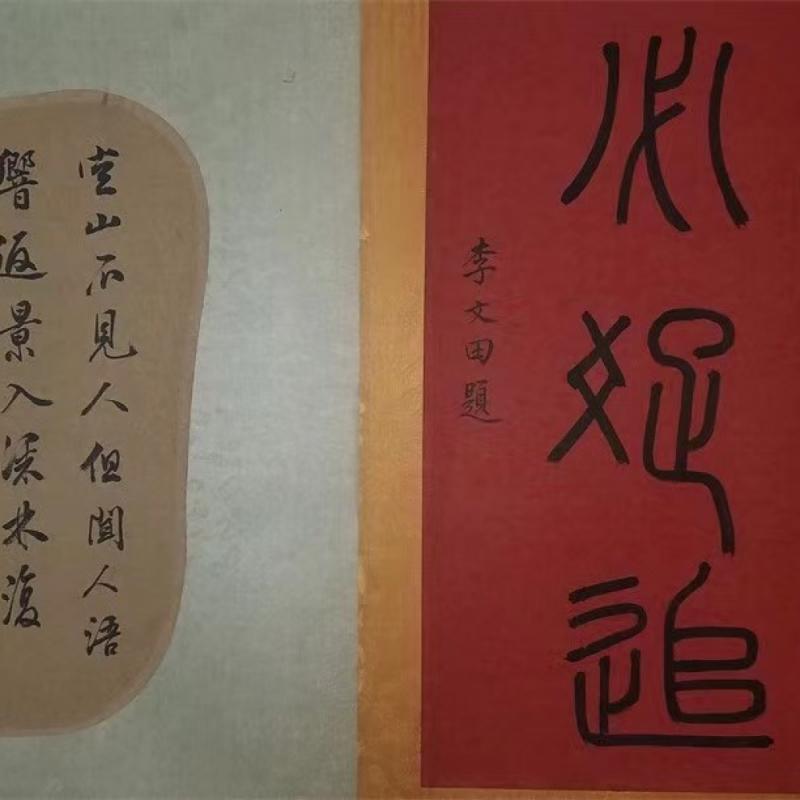 必追
李文田題
空山不見人但聞人語
響返景入深林復